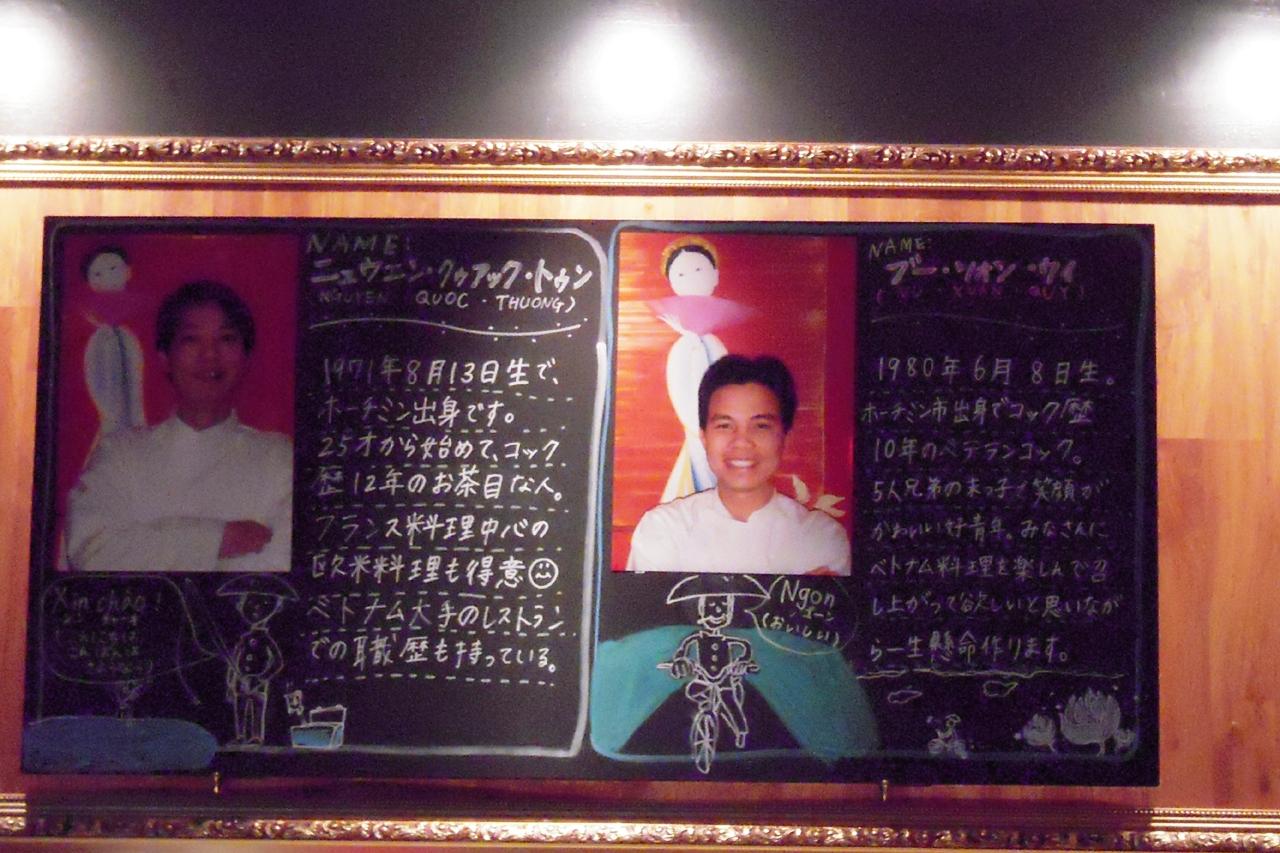 NAME:
ニュウエン・クゥアック・トゥン
(NGUYEN QUOC・THUONG)
1971年8月13日生で、
ホーチミン出身です。
25才から始めて、コック
歴12年のお茶目な人。
フランス料理中心の
欧米料理も得意
ベトナム大手のレストラン
での職歴も持っている。
Xin chào!
NAME:
ブー・ソォン・クイ
1980年6月8日生。
ホーチミン市出身でコック歴
10年のベテランコック。
5人兄弟の末っ子で笑顔が
かわいい好青年。みなさんに
ベトナム料理を楽しんで召
し上がって欲しいと思いなが
ら一生懸命作ります。
Ngon
(おいしい)